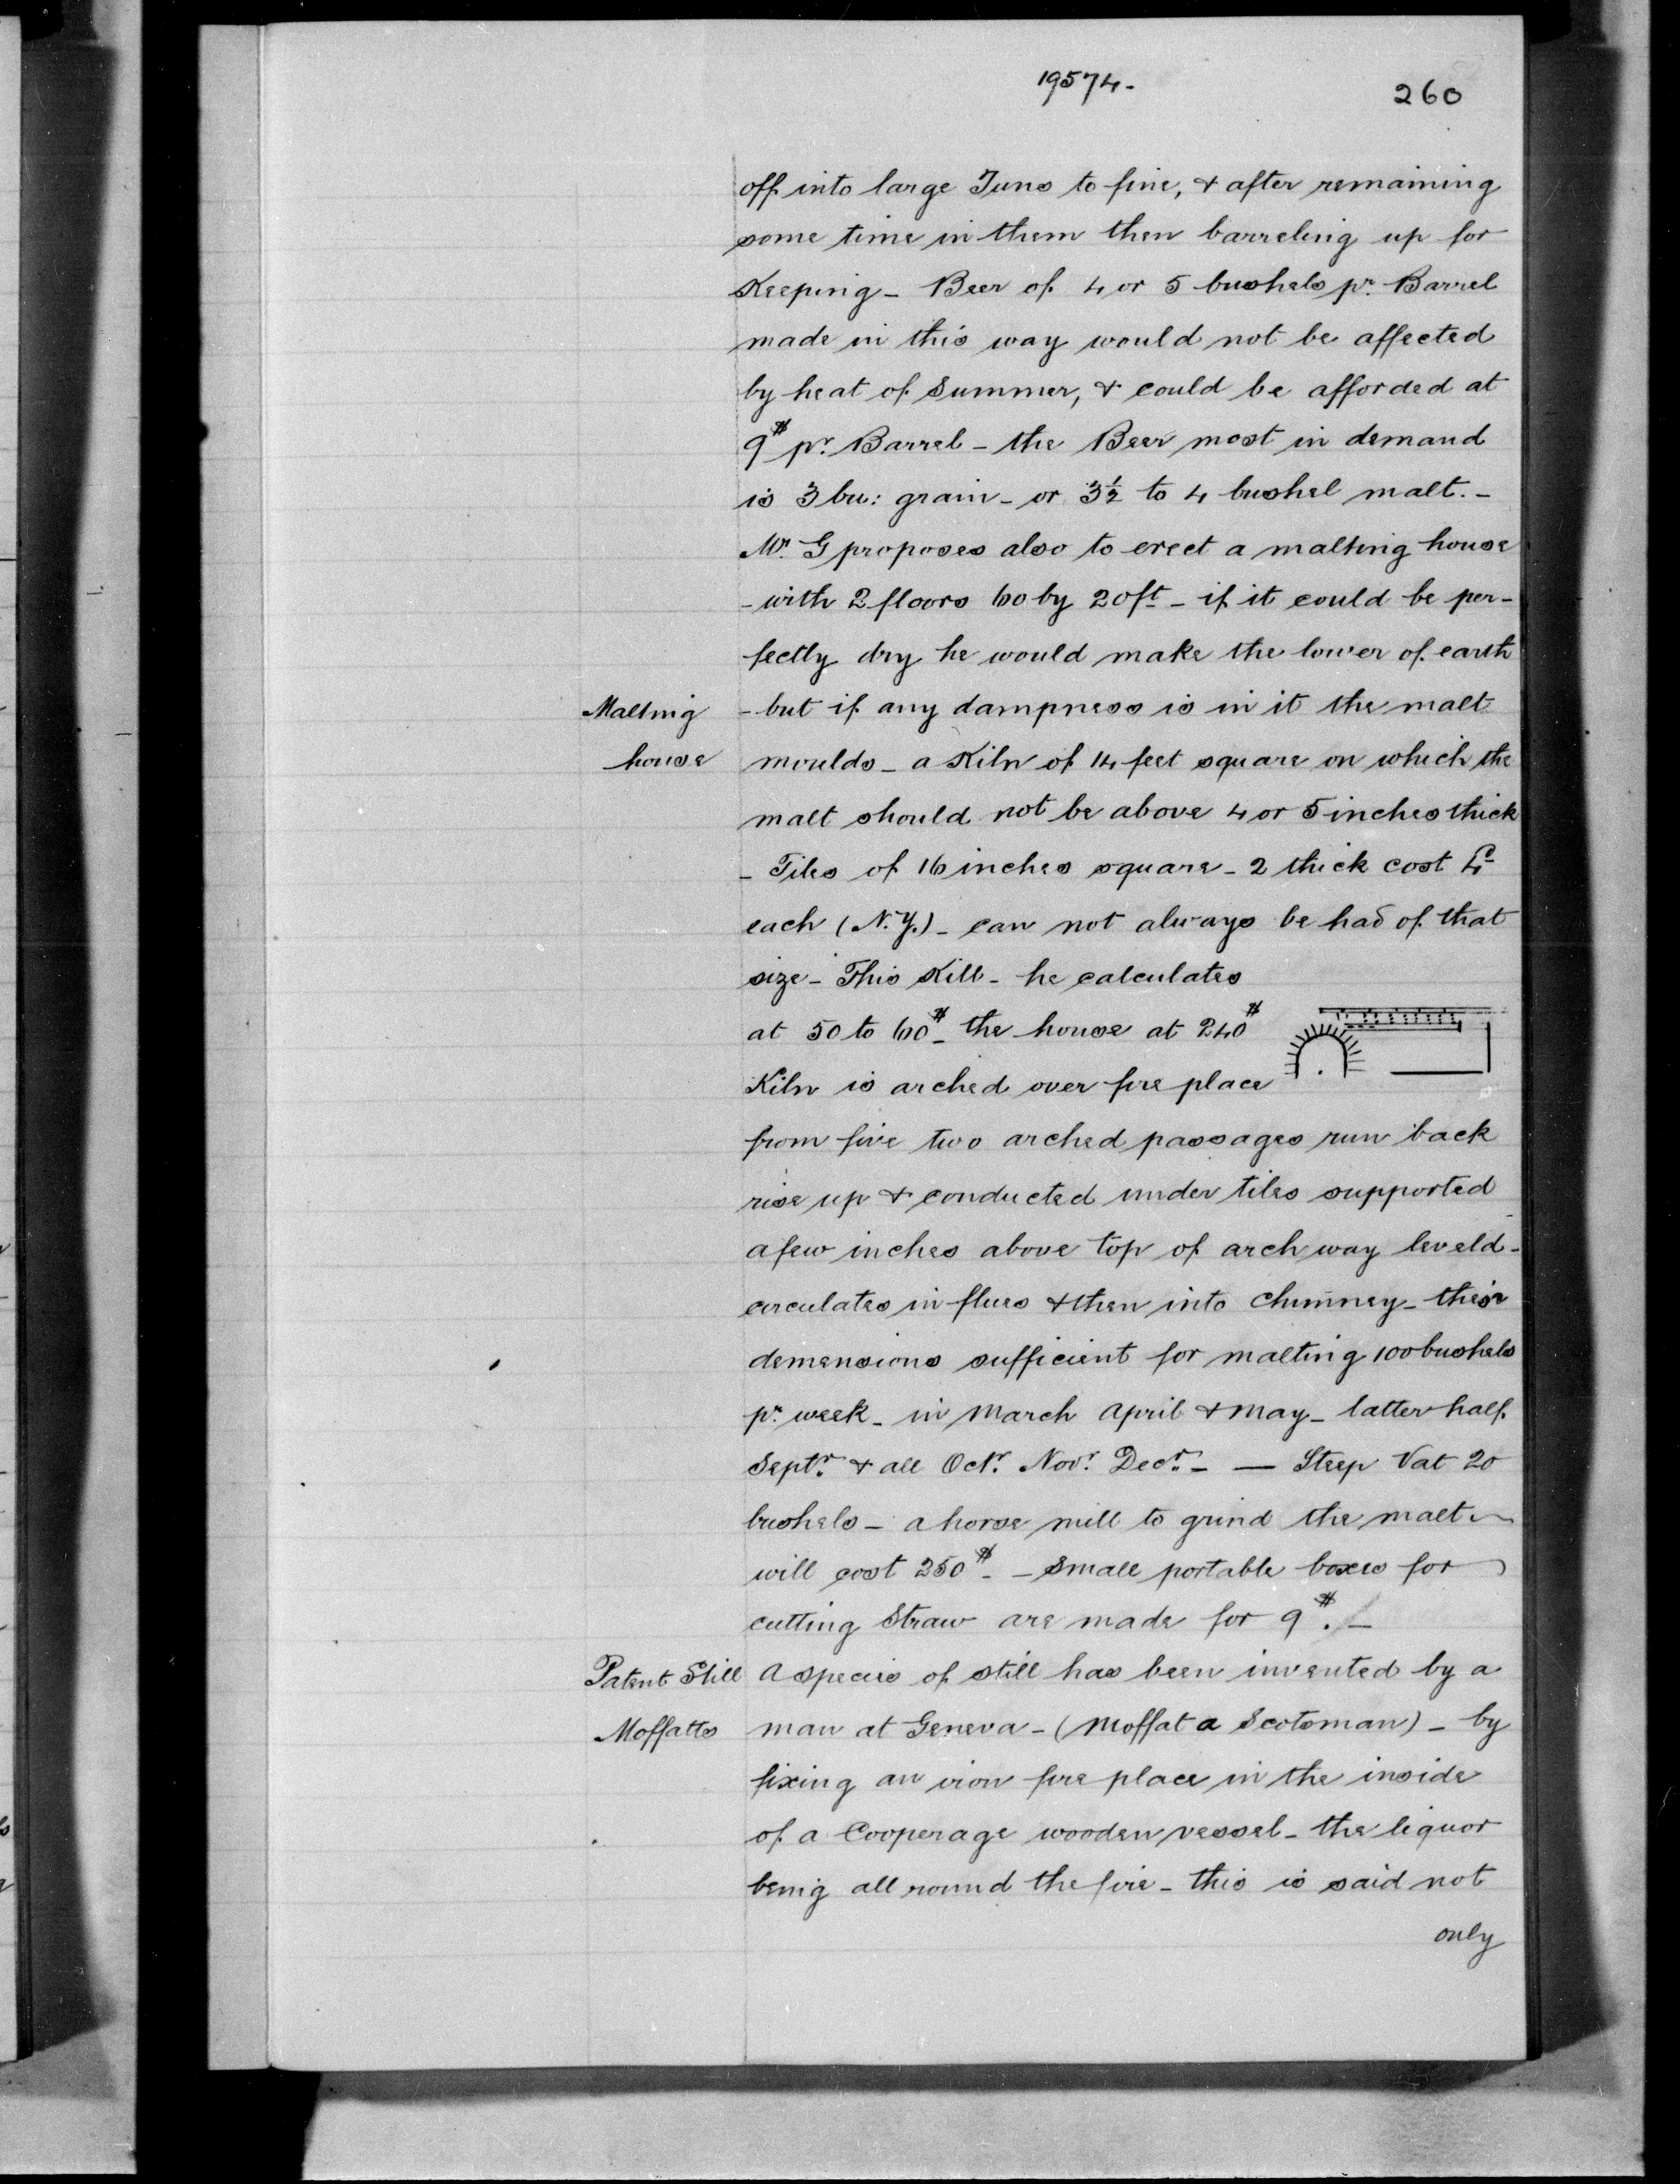 19574.-
260
off into large Tuns to fine, & after remaining
some time in them then barreling up for
Keeping - Beer of 4 or 5 bushels pr. Barrel
made in this way would not be affected
by heat of Summer, & could be afforded at
9$ pr. Barrel - the Beer most in demand
is 3 bu: grain - or 3½ to 4 bushel malt. -
Mr. G proposes also to erect a malting house
- with 2 floors 60 by 20 ft - if it could be per-
fectly dry he would make the lower of earth
Malting - but if any dampness is in it the malt
house moulds - a Kiln of 14 feet square on which the
malt should not be above 4 or 5 inches thick
- Tiles of 16 inches square - 2 thick cost
each (N.Y.) - can not always be had of that
size - This Kill - he calculates
at 50 to 60$ - the house at 240$
Kiln is arched over fire place
from five two arched passages run back
rise up & conducted under tiles supported
a few inches above top of arch way leveld -
circulates in flues & then into Chimney - their
demensions sufficient for malting 100 bushels
pr. week - in March April & May - latter half
Septr. & all Octr. Novr. Decr. - — Steep Vat 20
bushels - a horse mill to grind the malt
will cost 250$ - - Small portable boxes for
cutting Straw are made for 9$. -
Patent Still A specis of still has been invented by a
Moffatts man at Geneva - (Moffat a Scotsman) - by
fixing an iron fire place in the inside
of a Cooperage wooden vessel - the liquor
being all round the fire - this is said not
only